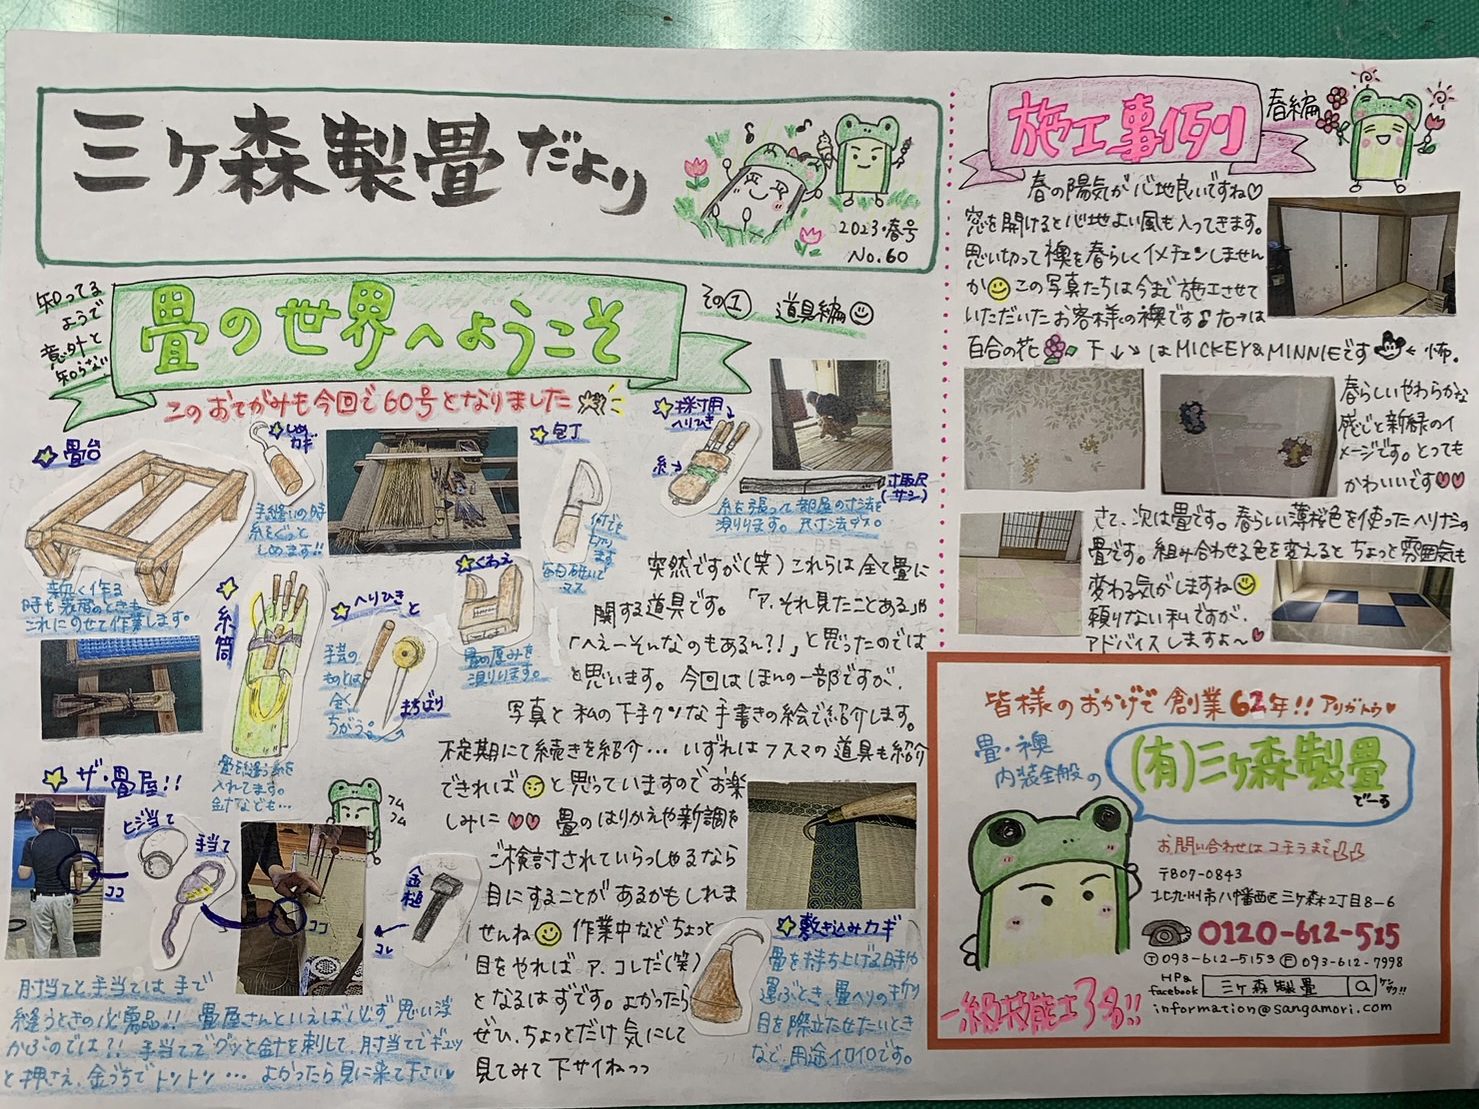 三ヶ森製畳だより
2023・春号
No.60
知ってる
ようで
意外と
知らない
畳の世界へようこそ
その① 道具編
このおてがみも今回で60号となりました
畳台
新しく作る
時も表替のときも
これにのせて作業します。
しめ
カギ
手縫いの時
糸をぐっと
しめます!!
包丁
何でも
切り
ます
毎日研いで
マス
採寸用
ヘリひき
糸→
寸取尺
(サシ)
糸を張って部屋の寸法を
測ります。
糸筒
畳を縫う糸を
入れてます。
針なども…
へりひきと
手芸の
ものとは
全く
ちがう。
まちばり
くわえ
畳の厚みを
測ります。
突然ですが(笑)これらは全て畳に
関する道具です。「ア、それ見たことある」や
「へえーそんなのもあるん?!」と思ったのでは
と思います。今回はほんの一部ですが、
写真と私の下手クソな手書きの絵で紹介します。
不定期にて続きを紹介… いずれはフスマの道具も紹介
できればと思っていますのでお楽
しみに 畳のはりかえや新調を
ご検討されていらっしゃるなら
目にすることがあるかもしれま
せんね 作業中などちょっと
目をやれば ア、コレだ(笑)
となるはずです。よかったら
ぜひ、ちょっとだけ気にして
見てみて下サイねっっ
ザ・畳屋!!
ヒジ当て
ココ
手当て
ココ
フム
フム
金槌
コレ
肘当てと手当ては手で
縫うときの必需品!! 畳屋さんといえば必ず思い浮
かぶのでは?! 手当てでグッと針を刺して、肘当てでギュッ
と押さえ、金づちでトントン… よかったら見に来て下さい
敷き込みカギ
畳を持ち上げる時や
運ぶとき、畳ヘリの
目を際立たせたいとき
など、用途イロイロです。
施工事例
春編
春の陽気が心地良いですね♡
窓を開けると心地よい風も入ってきます。
思い切って襖を春らしくイメチェンしません
か この写真たちは今まで施工させて
いただいたお客様の襖です♪右→は
百合の花 下↓↘はMICKEY&MINNIEです ←怖。
春らしいやわらかな
感じと新緑のイ
メージです。とっても
かわいいです♡♡
さて、次は畳です。春らしい薄桜色を使ったヘリナシの
畳です。組み合わせる色を変えるとちょっと雰囲気も
変わる気がしますね
頼りない私ですが、
アドバイスしますよ〜
皆様のおかげで創業62年!! アリガトウ♥
畳・襖
内装全般の
(有)三ヶ森製畳
でーす
お問い合わせはコチラまで
〒807-0843
北九州市八幡西区三ヶ森2丁目8-6
0120-612-515
Ⓣ093-612-5153 Ⓕ093-612-7998
HP&
facebook 三ヶ森製畳 ケンサク!!
information@sangamori.com
一級技能士3名!!